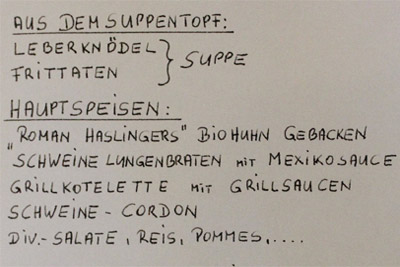 AUS DEM SUPPENTOPF:
LEBERKNÖDEL
FRITTATEN } SUPPE
HAUPTSPEISEN:
„ROMAN HASLINGERS" BIOHUHN GEBACKEN
SCHWEINE LUNGENBRATEN MIT MEXIKOSAUCE
GRILLKOTELETTE MIT GRILLSAUCEN
SCHWEINE - CORDON
DIV.- SALATE, REIS, POMMES,....